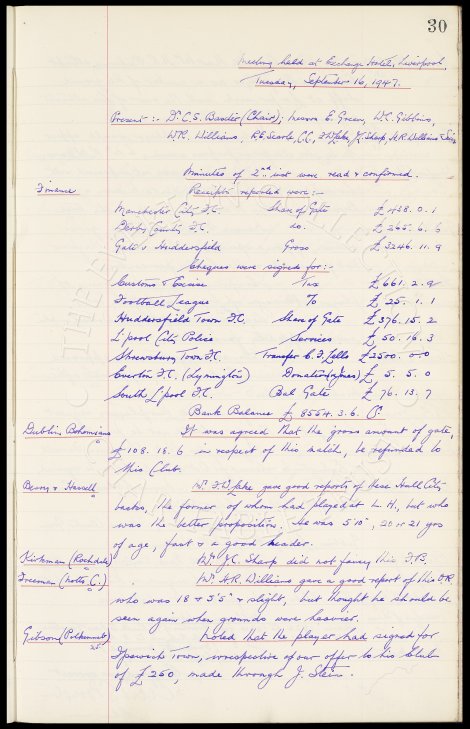 30
Meeting held at Exchange Hotel, Liverpool,
Tuesday, September 16, 1947.
Present :- Dr. C.S. Baxter (Chair); Messrs E. Green, W.C. Gibbins,
W.R. Williams, R.E. Searle, C.C., J.C. Sharp, H.R. Williams &
Minutes of 2nd inst were read & confirmed.
Finance
Receipts reported were:-
Manchester City F.C. Share of Gate £ 438. 0. 1
Derby County F.C. do. £ 265. 6. 6
Gate v Huddersfield Gross £ 3246. 11. 9
Cheques were signed for:-
Customs & Excise Tax £ 661. 2. 9
Football League To £ 25. 1. 1
Huddersfield Town F.C. Share of Gate £ 376. 15. 2
L'pool City Police Services £ 50. 16. 3
Shrewsbury Town F.C. Transfer C.F. Lello £ 2500. 0. 0
Everton F.C. (Lymington) Donation £ 5. 5. 0
South L'pool F.C. Bal Gate £ 76. 13. 7
Bank Balance £ 8554. 3. 6. Cr
Dublin Bohemians It was agreed that the gross amount of gate,
£ 108. 18. 6 in respect of this match, be refunded to
this Club.
Berry & Hassell gave good reports of these Hull City
backs, the former of whom had played at L.H., but who
was the better proposition. He was 5'10", 20 or 21 yrs
of age, fast & a good header.
Kirkman (Rochdale) Mr. J.C. Sharp did not fancy this F.B.
Freeman (Notts C.) Mr. H.R. Williams gave a good report of this O.R.
who was 18 & 5'5" & slight, but thought he should be
seen again when grounds were heavier.
Gibson Noted that the player had signed for
Ipswich Town, irrespective of our offer to his Club
of £250, made through J. Stein.